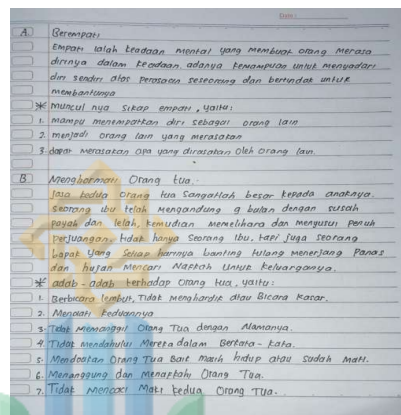 Date :
A. Berempati
Empati ialah keadaan mental yang membuat orang merasa
dirinya dalam keadaan adanya kemampuan untuk menyadari
diri sendiri atas perasaan seseorang dan bertindak untuk
membantunya
* muncul nya sikap empati, yaitu:
1. mampu menempatkan diri sebagai orang lain
2. menjadi orang lain yang merasakan
3. dapat merasakan apa yang dirasakan oleh orang lain.
B Menghormati Orang tua.
Jasa kedua orang tua sangatlah besar kepada anaknya.
seorang ibu telah mengandung 9 bulan dengan susah
payah dan lelah, kemudian memelihara dan menyusui penuh
perjuangan. tidak hanya seorang ibu, tapi juga seorang
bapak yang setiap harinya banting tulang menerjang panas
dan hujan mencari Nafkah untuk keluarganya.
* adab-adab terhadap orang tua, yaitu:
1. Berbicara lembut, Tidak menghardik atau Bicara Kasar.
2. Mentaati keduannya
3. Tidak memanggil Orang Tua dengan Namanya.
4. Tidak mendahului Mereka dalam Berkata-kata.
5. Mendoakan Orang Tua Baik masih hidup atau sudah mati.
6. Menanggung dan Menafkahi Orang Tua.
7. Tidak Mencaci Maki kedua Orang Tua.